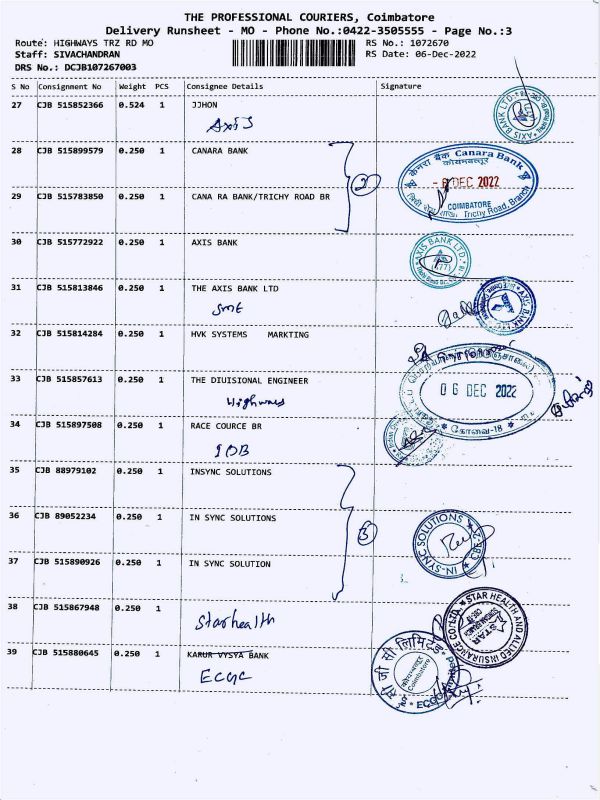 THE PROFESSIONAL COURIERS, Coimbatore
Delivery Runsheet - MO - Phone No.:0422-3505555 - Page No.:3
Route: HIGHWAYS TRZ RD MO RS No.: 1072670
Staff: SIVACHANDRAN RS Date: 06-Dec-2022
DRS No.: DCJB107267003
S No Consignment No Weight PCS Consignee Details Signature
27 CJB 515852366 0.524 1 JJHON
Axis
AXIS BANK LTD.
28 CJB 515899579 0.250 1 CANARA BANK
केनरा बैंक Canara Bank
कोयम्बत्तूर
2
- 6 DEC 2022
29 CJB 515783850 0.250 1 CANA RA BANK/TRICHY ROAD BR
COIMBATORE
Trichy Road, Branch
30 CJB 515772922 0.250 1 AXIS BANK
AXIS BANK LTD.
31 CJB 515813846 0.250 1 THE AXIS BANK LTD
SME
AXIS BANK LTD.
32 CJB 515814284 0.250 1 HVK SYSTEMS MARKTING
33 CJB 515857613 0.250 1 THE DIUISIONAL ENGINEER
0 6 DEC 2022
Highways
34 CJB 515897508 0.250 1 RACE COURCE BR
கோவை-18
IOB
35 CJB 88979102 0.250 1 INSYNC SOLUTIONS
36 CJB 89052234 0.250 1 IN SYNC SOLUTIONS
3
IN-SYNC SOLUTIONS
37 CJB 515890926 0.250 1 IN SYNC SOLUTION
38 CJB 515867948 0.250 1
Starhealth
STAR HEALTH AND ALLIED INSURANCE CO. LTD.
STAR
39 CJB 515880645 0.250 1 KARUR VYSYA BANK
ECGC
ई सी जी सी लिमिटेड
कोयम्बत्तूर
Coimbatore
ECGC Limited